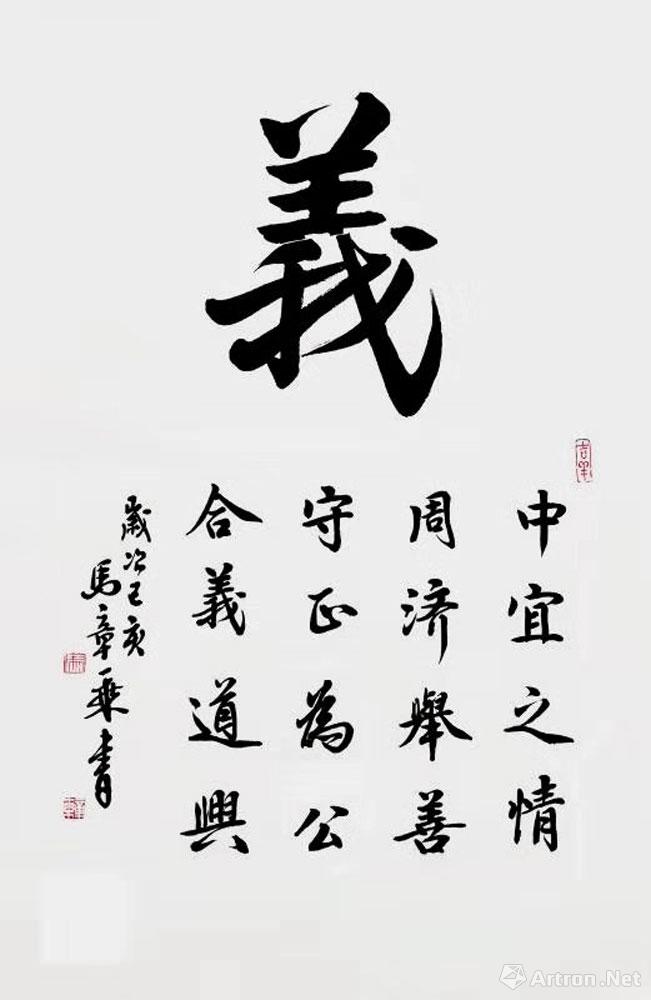 義
中宜之情
周济舉善
守正為公
合義道興
歲次己亥
馬章乘書
Artron.Net